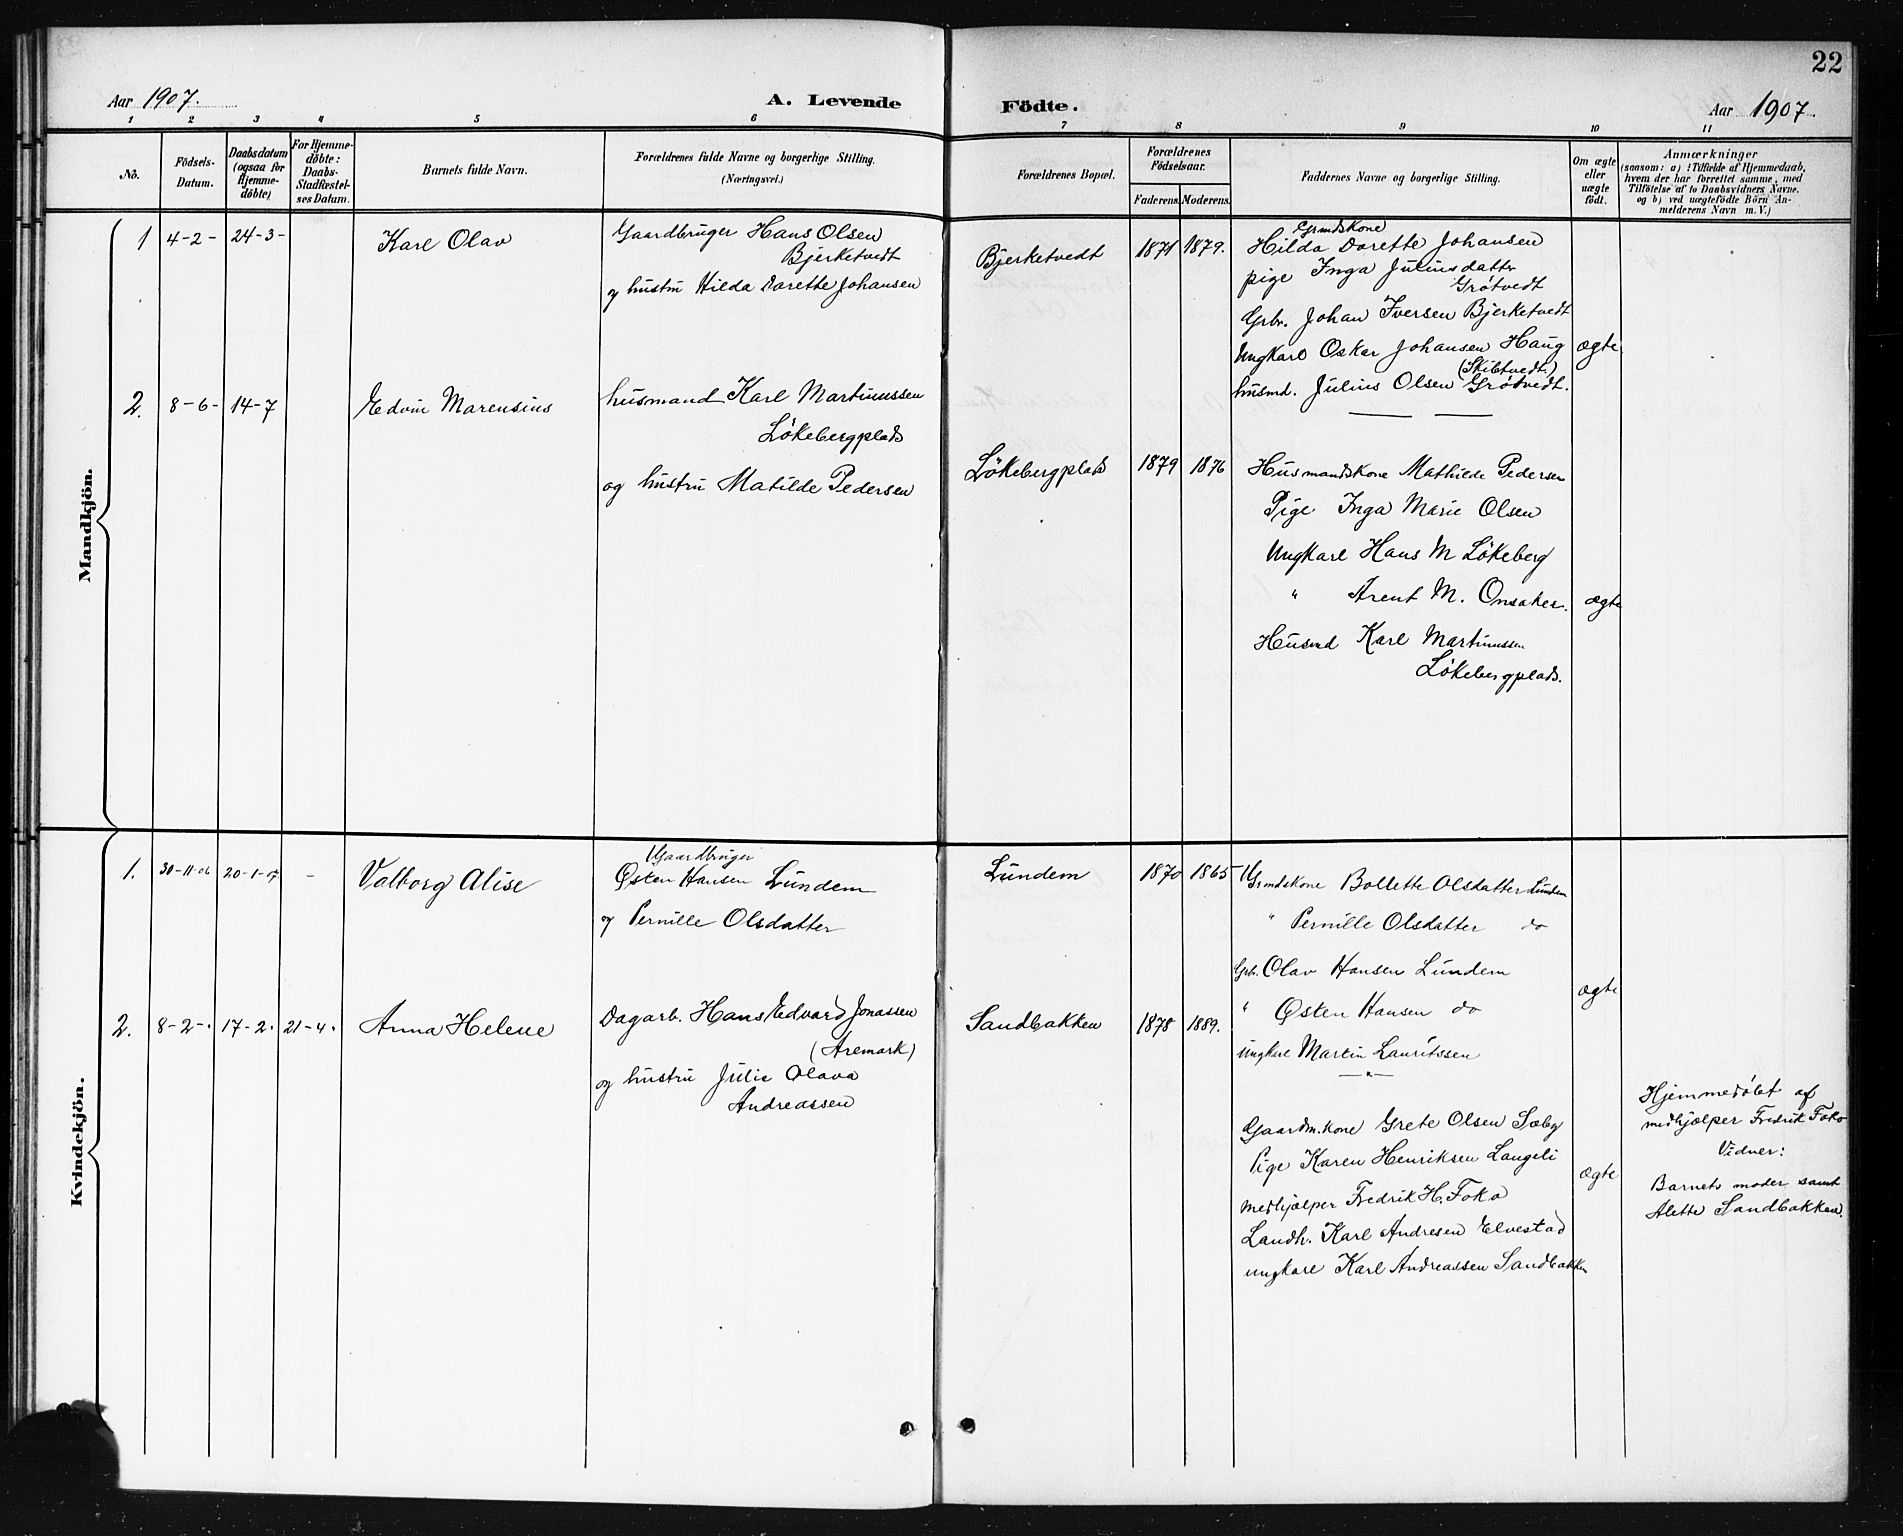 22
Aar 1907.
A. Levende
Födte.
Aar 1907.
1 2 3 4 5 6 7 8 9 10 11
No.
Födsels-Datum.
Daabsdatum (ogsaa for Hjemme-döbte)
For Hjemme-döbte: Daabs-Stadfæstel-ses Datum.
Barnets fulde Navn.
Forældrenes fulde Navne og borgerlige Stilling.
(Næringsvei.)
Forældrenes Bopæl.
Forældrenes Födselsaar.
Faderens. Moderens.
Faddernes Navne og borgerlige Stilling.
Om ægte eller uægte födt.
Anmærkninger
(saasom: a) i Tilfælde af Hjemmedaab,
hvem der har forrettet samme, med
Tilföielse af to Daabsvidners Navne.
og b) ved uægtefödte Börn An-
melderens Navn m. V.)
Mandkjön.
1 4-2- 24-3- Karl Olav
Gaardbruger Hans Olsen
Bjerketvedt
og hustru Hilda Dorette Johansen
Bjerketvedt 1871 1879.
Grmdskone
Hilda Dorette Johansen
pige Inga Juliusdatter
Grötvedt
Grbr. Johan Iversen Bjerketvedt
Ungkarl Oskar Johansen Haug
(Skibtvedt)
husmd. Julius Olsen Grötvedt.
ægte
2. 8-6- 14-7 Edvin Marensius
husmand Karl Martinussen
Lökebergplads
og hustru Matilde Pedersen
Lökebergplads 1879 1876
Husmandskone Mathilde Pedersen
Pige Inga Marie Olsen
Ungkarl Hans M Lökeberg
" Arent M. Onsaker.
ægte
Husmd Karl Martinussen
Lökebergplads.
Kvindekjön.
1. 30-11-06 20-1-07 - Valborg Alise
Gaardbruger
Østen Hansen Lundem
og Pernille Olsdatter
Lundem 1870 1865
Grmdskone Bollette Olsdatter Lundem
" Pernille Olsdatter do
Grb. Olav Hansen Lundem
" Østen Hansen do
ægte
ungkarl Martin Lauritssen
2. 8-2-. 17-2. 21-4. Anna Helene
Dagarb. Hans Edvard Jonassen
(Aremark)
og hustru Julie Olava
Andreassen
Sandbakken 1878 1889.
Gaardm.kone Grete Olsen Sæby
Pige Karen Henriksen Langeli
medhjælper Fredrik H. Foko
Landh. Karl Andresen Elvestad
ungkarl Karl Andreassen Sandbakken
ægte
Hjemmedöbt af
medhjælper Fredrik Foko
Vidner:
Barnets moder samt
Alette Sandbakken.